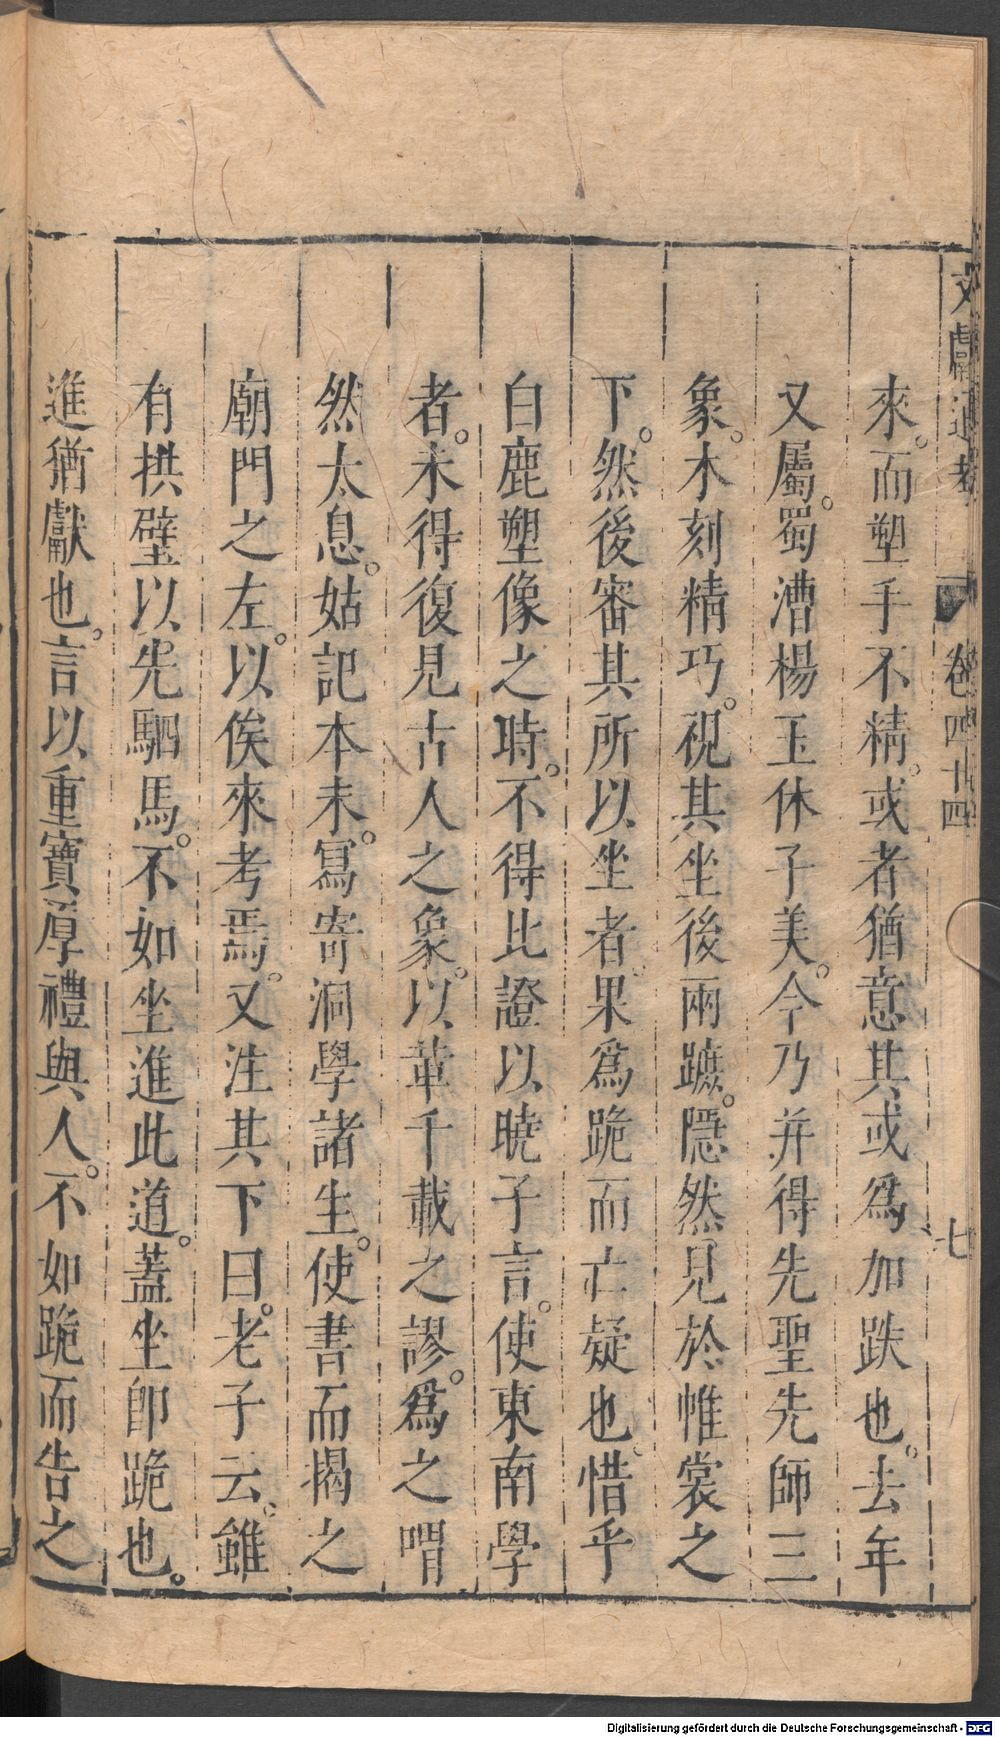 文獻通考 卷四十四 七
來。而塑手不精。或者猶意其或爲加趺也。去年
又屬。蜀漕楊玉休子美。今乃并得先聖先師三
象。木刻精巧。視其坐後兩蹠。隱然見於帷裳之
下。然後審其所以坐者。果爲跪而亡疑也。惜乎
白鹿塑像之時。不得此證以曉子言。使東南學
者。未得復見古人之象。以革千載之謬。爲之喟
然太息。姑記本末。寫寄洞學諸生。使書而揭之
廟門之左。以俟來考焉。又注其下曰。老子云。雖
有拱璧以先駟馬。不如坐進此道。蓋坐卽跪也。
進猶獻也。言以重寶厚禮與人。不如跪而告之
Digitalisierung gefördert durch die Deutsche Forschungsgemeinschaft - DFG